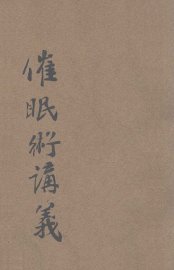 催眠術講義